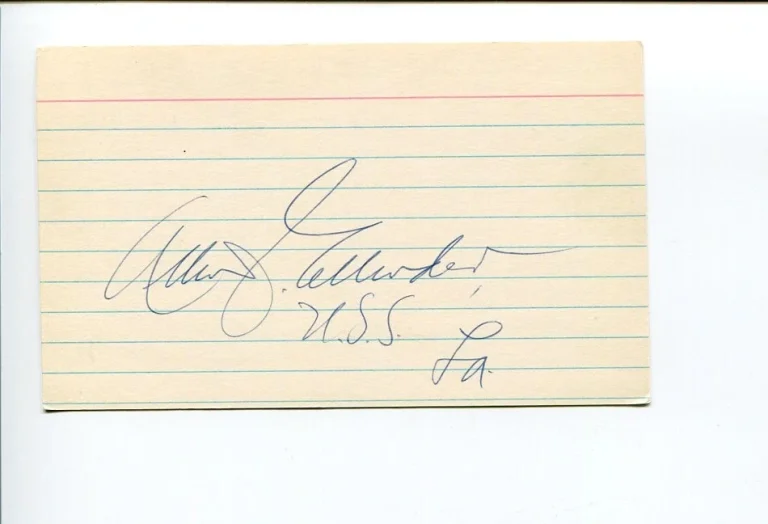 Allen J. Ellender,
U.S.S.
La.